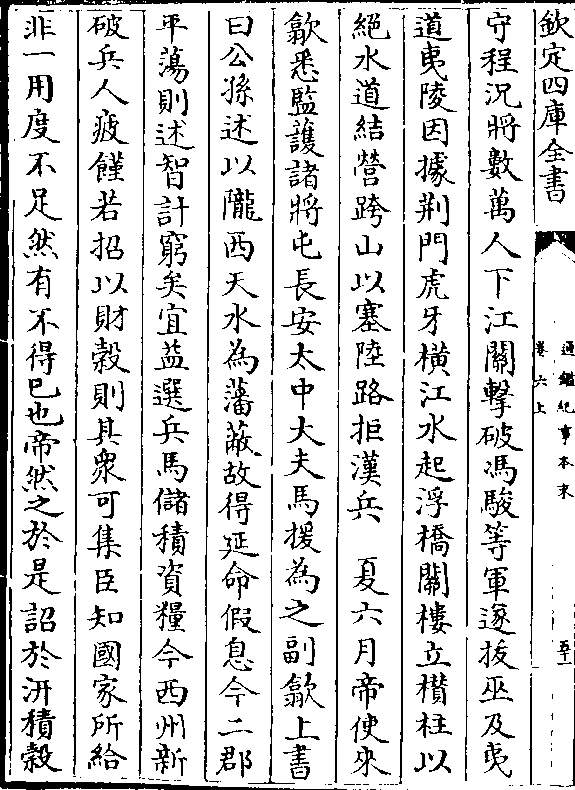 欽定四庫全書
通鑑紀事本末
卷六上
守程況將數萬人下江關擊破馮駿等軍遂拔巫及夷
道夷陵因據荆門虎牙橫江水起浮橋關樓立櫕柱以
絕水道結營跨山以塞陸路拒漢兵　夏六月帝使來
歙悉監護諸將屯長安太中大夫馬援為之副歙上書
曰公孫述以隴西天水為藩蔽故得延命假息今二郡
平蕩則述智計窮矣宜益選兵馬儲積資糧今西州新
破兵人疲饉若招以財穀則其衆可集臣知國家所給
非一用度不足然有不得已也帝然之於是詔於汧積穀